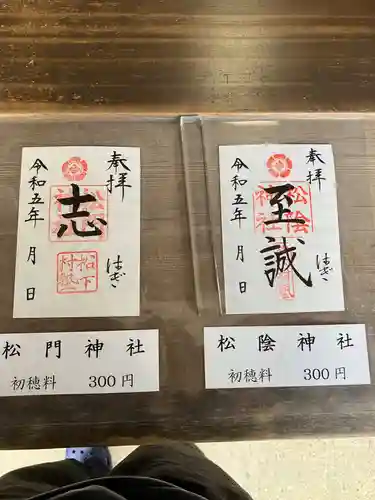 奉拝
志
はぎ
令和五年 月 日
松下
村塾
松門神社
初穂料 300円
奉拝
松陰
神社
至誠
はぎ
令和五年 月 日
松陰神社
初穂料 300円